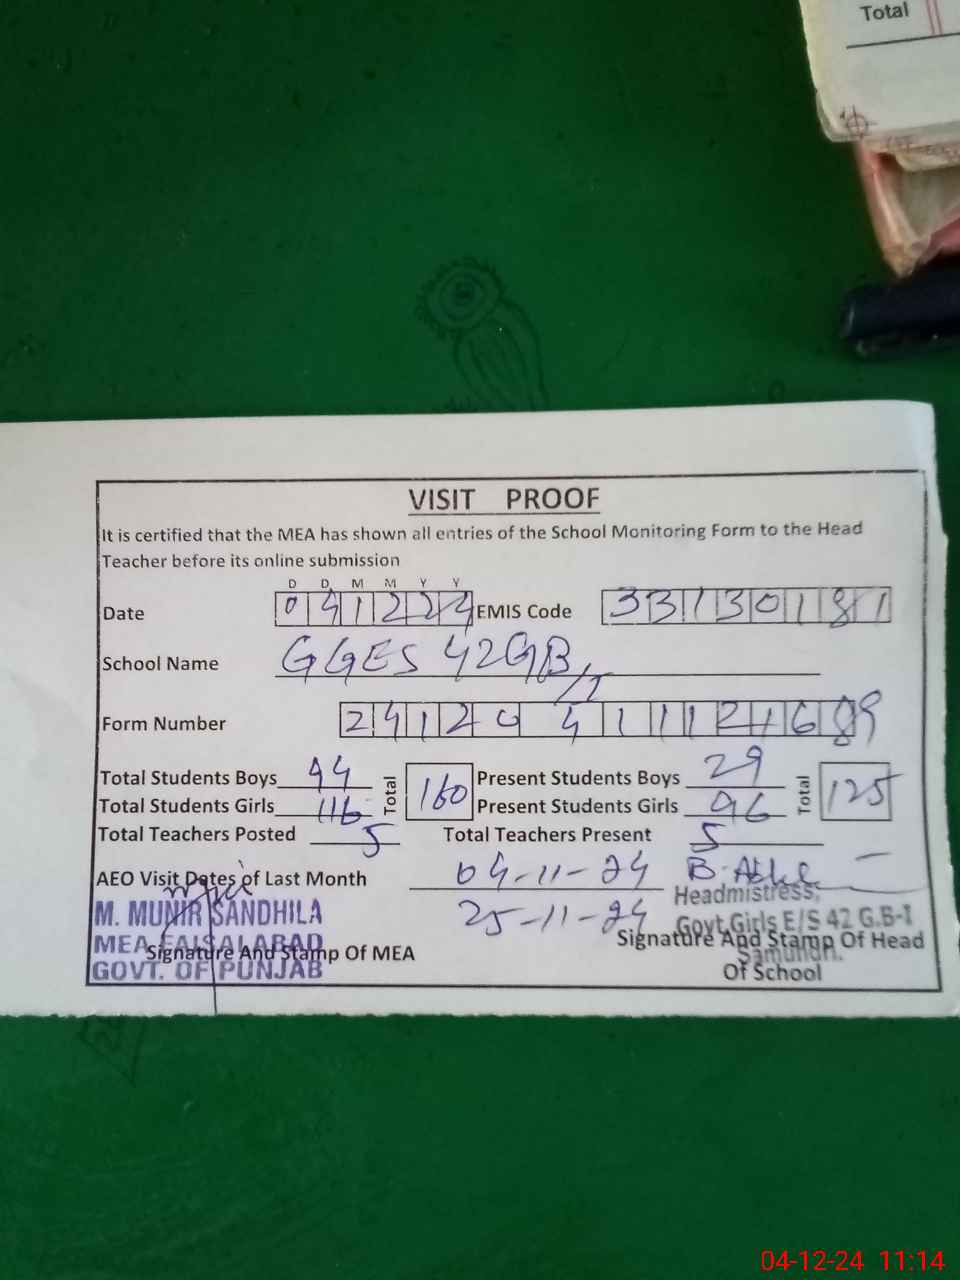 Total
VISIT PROOF
It is certified that the MEA has shown all entries of the School Monitoring Form to the Head
Teacher before its online submission
D D M M Y Y
Date 041224 EMIS Code 33130181
School Name GGES 42GB/I
Form Number 24120411121689
Total Students Boys 44 Total 160 Present Students Boys 29 Total 125
Total Students Girls 116 Present Students Girls 96
Total Teachers Posted 5 Total Teachers Present 5
AEO Visit Dates of Last Month 04-11-24
25-11-24
M. MUNIR SANDHILA
MEA FAISALABAD
GOVT. OF PUNJAB
Signature And Stamp Of MEA
Headmistress,
Govt Girls E/S 42 G.B-I
Samundri.
Signature And Stamp Of Head
Of School
04-12-24 11:14